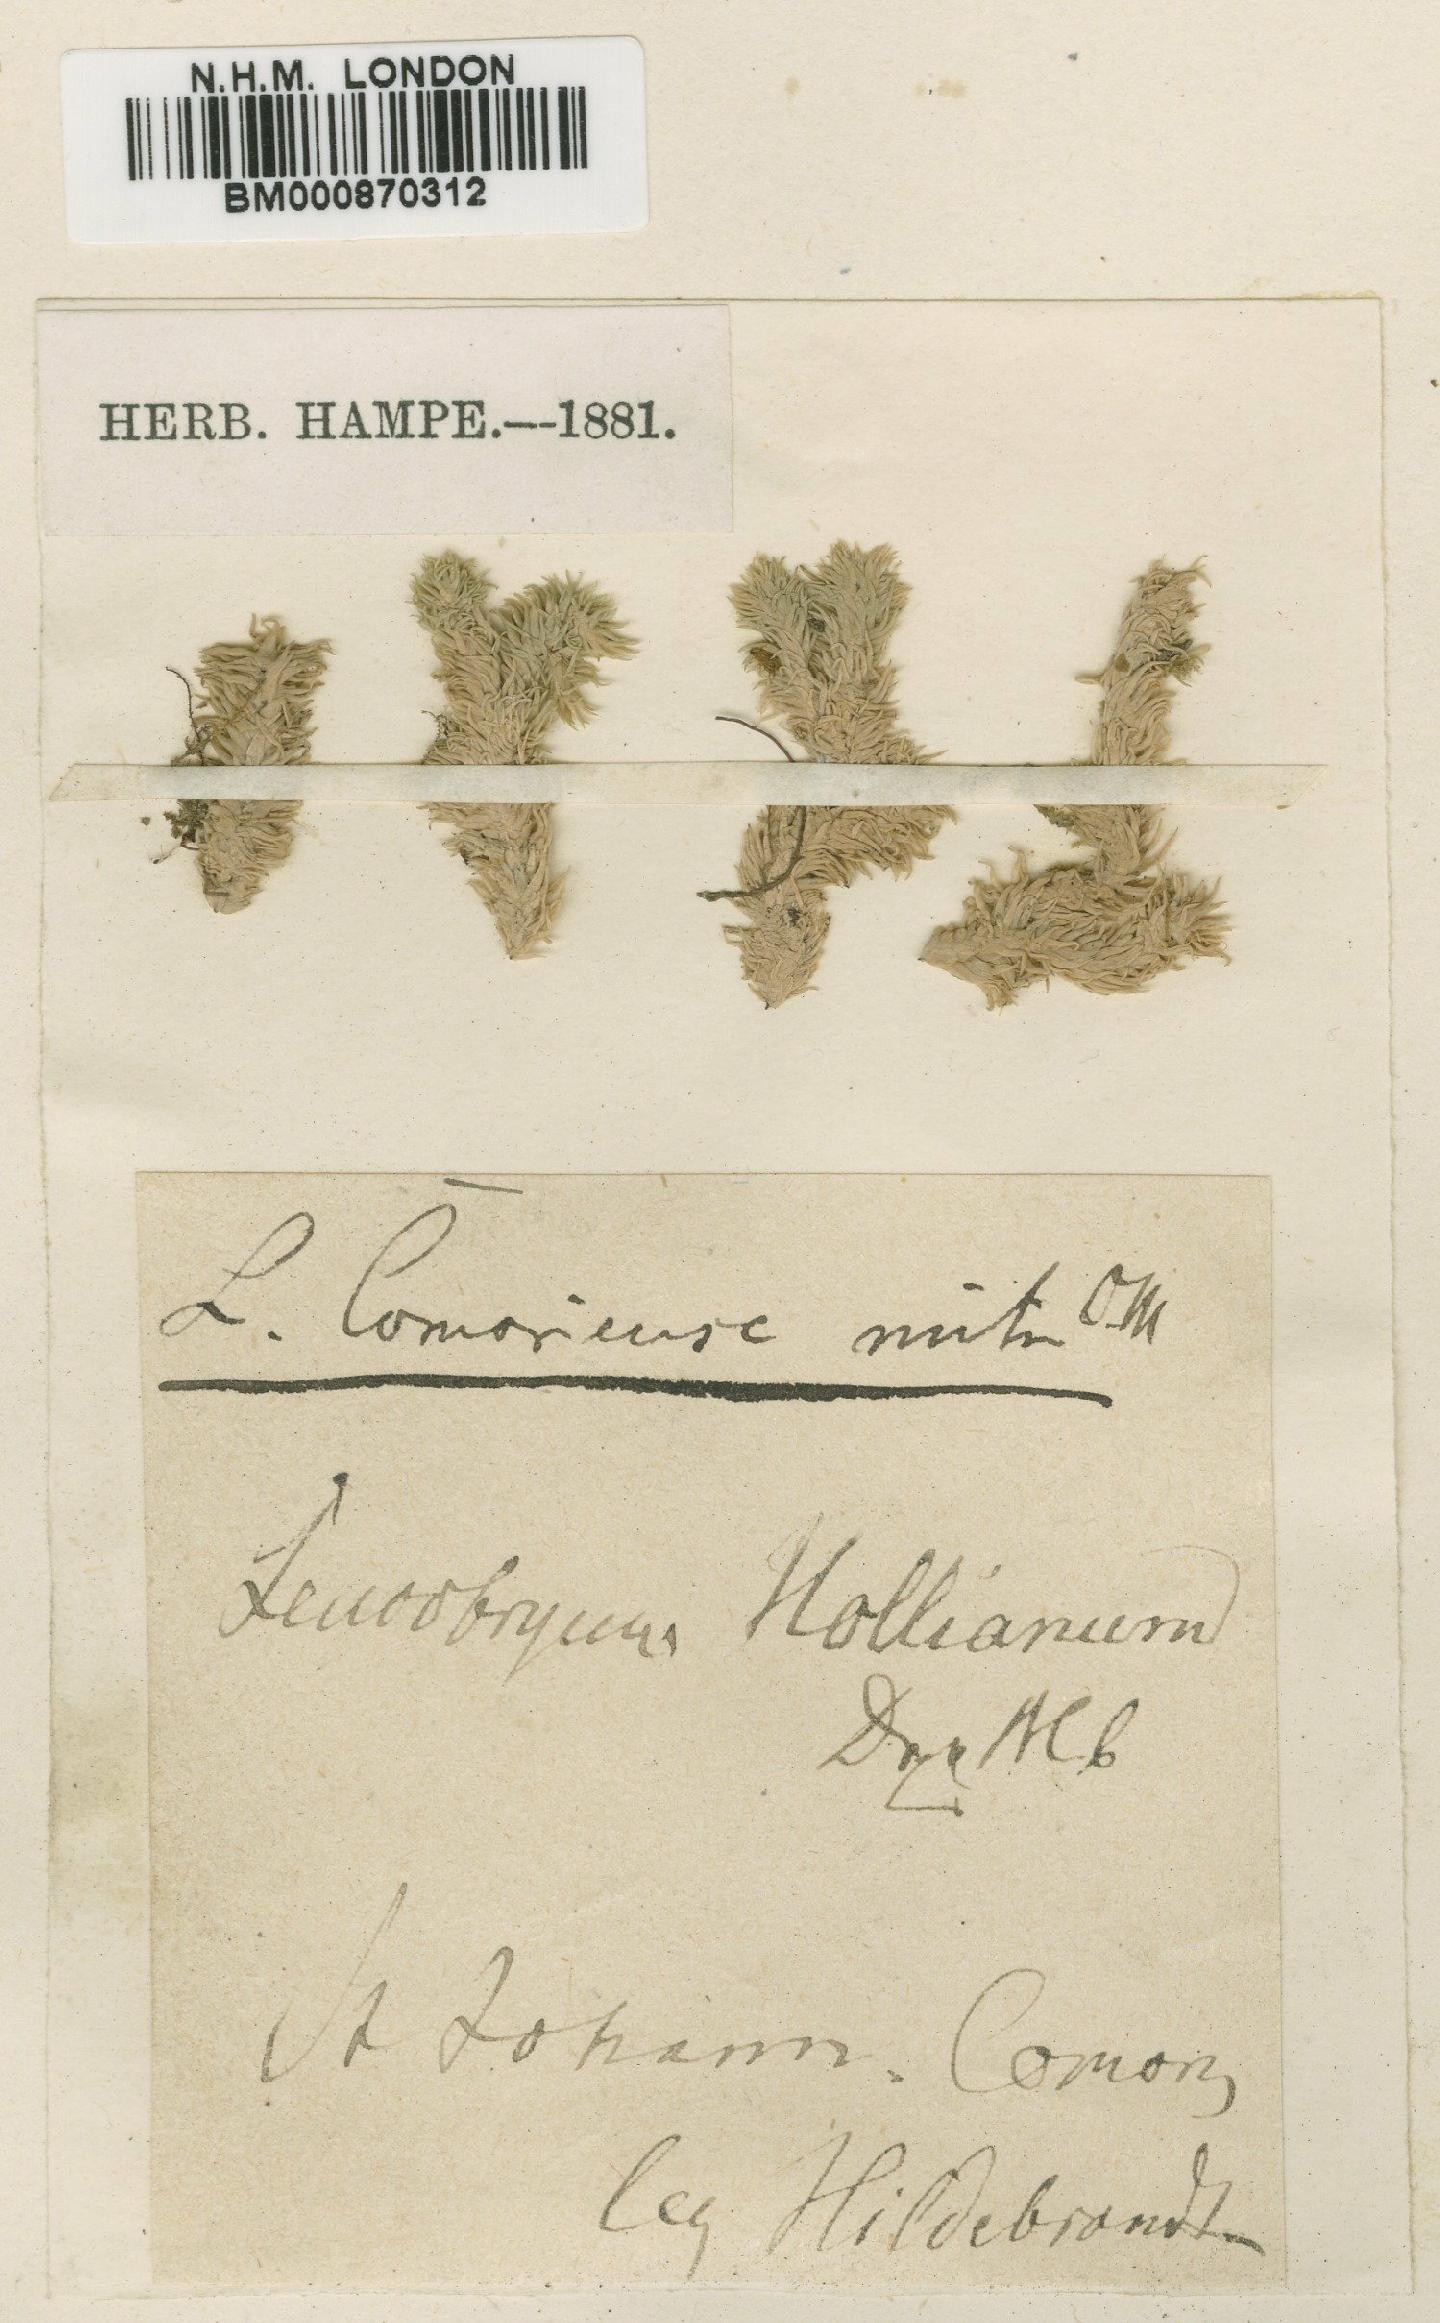 N.H.M. LONDON
BM000870312
HERB. HAMPE.—1881.
L. Comoriense
Leucobryum Hollianum
Dzy Mlb
St Johann. Comor,
leg Hildebrandt